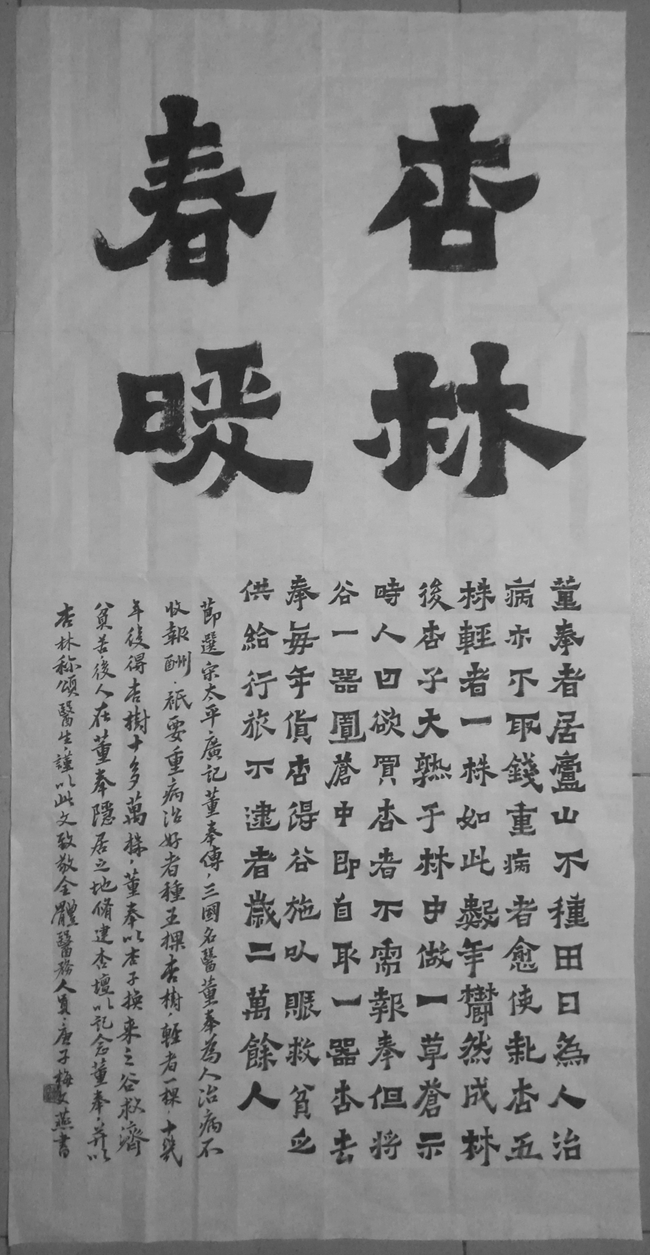 杏林
春暖
董奉者居廬山不種田日為人治
病亦不取錢重病者愈使栽杏五
株輕者一株如此數年鬱然成林
後杏子大熟于林中做一草蒼示
時人曰欲買杏者不需報奉但將
谷一器置蒼中即自取一器杏去
奉每年貨杏得谷施以賑救貧乏
供給行旅不逮者歲二萬餘人
節選宋太平廣記董奉傳，三國名醫董奉為人治病不
收報酬，祇要重病治好者種五棵杏樹輕者一棵，十幾
年後得杏樹十多萬株，董奉以杏子換来之谷救濟
貧苦，後人在董奉隱居之地脩建杏壇以記念董奉，并以
杏林称頌醫生，謹以此文致敬全體醫務人員，庚子梅文燕書